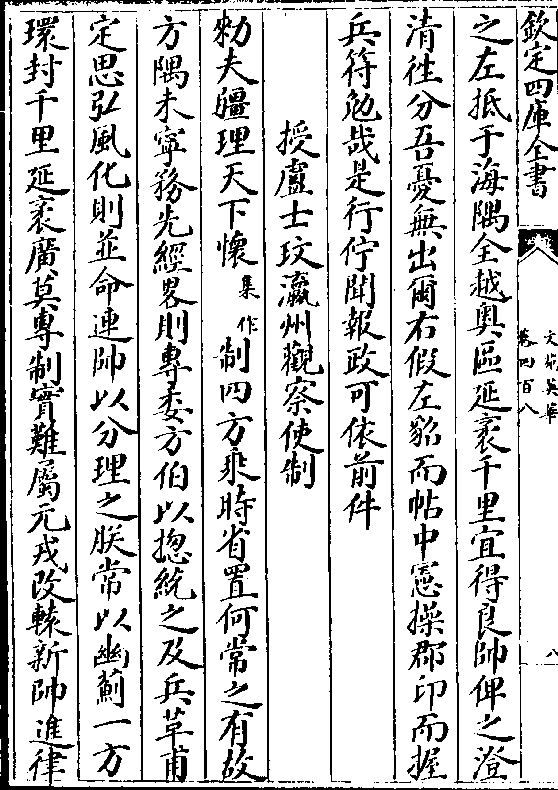 欽定四庫全書
文苑英華
卷四百八
八
之左抵于海隅全越奥區延袤千里宜得良帥俾之澄
清徃分吾憂無出爾右假左貂而帖中憲操郡印而握
兵符勉哉是行佇聞報政可依前件
授盧士玫瀛州觀察使制
勑夫疆理天下懷集作制四方乘時省置何常之有故
方隅未寜務先經畧則專委方伯以揔統之及兵革甫
定思弘風化則並命連帥以分理之朕常以幽薊一方
環封千里延袤廣莫專制實難屬元戎改轅新帥進律